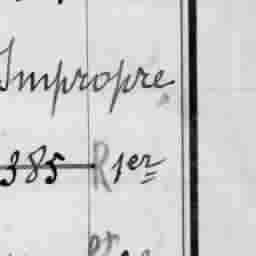 Impropre
385 R 1er